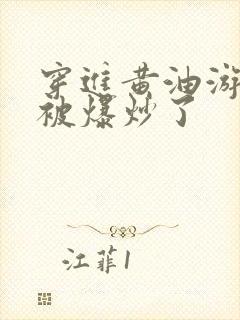 穿进黄油游
被爆炒了
江菲1